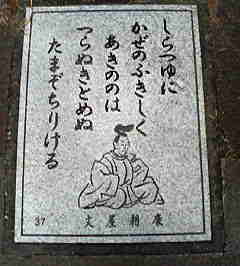 しらつゆに
かぜのふきしく
あきののは
つらぬきとめぬ
たまぞちりける
文屋朝康
37